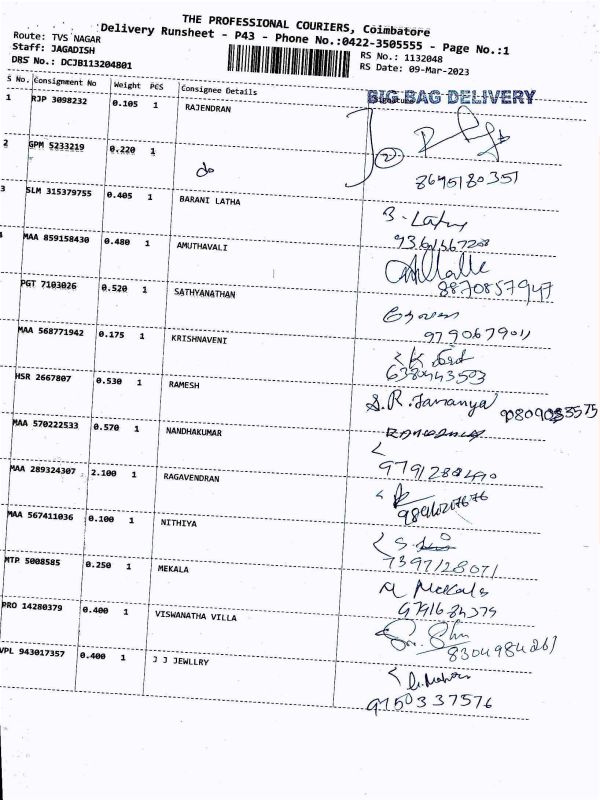 THE PROFESSIONAL COURIERS, Coimbatore
Delivery Runsheet - P43 - Phone No.:0422-3505555 - Page No.:1
Route: TVS NAGAR
Staff: JAGADISH RS No.: 1132048
DRS No.: DCJB113204801 RS Date: 09-Mar-2023
S No. Consignment No Weight PCS Consignee Details Signature
BIG BAG DELIVERY
1 RJP 3098232 0.105 1 RAJENDRAN
2 GPM 5233219 0.220 1 do 2
8695180351
3 SLM 315379755 0.405 1 BARANI LATHA
MAA 859158430 0.480 1 AMUTHAVALI
8870857947
PGT 7103026 0.520 1 SATHYANATHAN
9790679011
MAA 568771942 0.175 1 KRISHNAVENI
6380443503
HSR 2667807 0.530 1 RAMESH
MAA 570222533 0.570 1 NANDHAKUMAR
MAA 289324307 2.100 1 RAGAVENDRAN
MAA 567411036 0.100 1 NITHIYA
7397128071
MTP 5008585 0.250 1 MEKALA
M Mekala
PRO 14280379 0.400 1 VISWANATHA VILLA
8304984261
VPL 943017357 0.400 1 J J JEWLLRY
9750337576